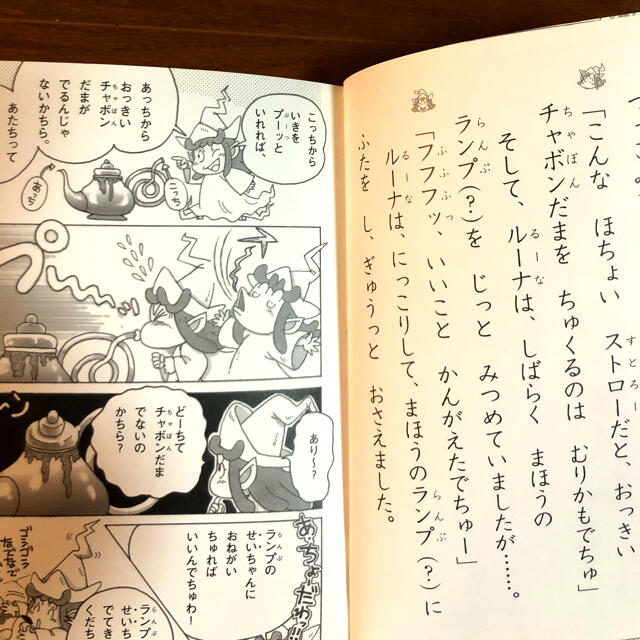 「こんな　ほちょい　ストローだと、おっきい
チャボンだまを　ちゅくるのは　むりかもでちゅ」
そして、ルーナは、しばらく　まほうの
ランプ（？）を　じっと　みつめていましたが……。
「フフフッ、いいこと　かんがえたでちゅー」
ルーナは、にっこりして、まほうのランプ（？）に
ふたを　し、ぎゅうっと　おさえました。
こっちから
いきを
プーッと
いれれば、
あっちから
おっきい
チャボン
だまが
でるんじゃ
ないかちら。
あたちって
こっち
あっち
プーーッ
あり〜？
どーちて
チャボンだま
でないの
かちら？
あ、ちょーだわっ!!
ランプの
せいちゃんに
おねがい
ちゅれば
いいんでちゅわ！
ランプ
せいち
でてき
くだち
ゴシゴシ
なでなで